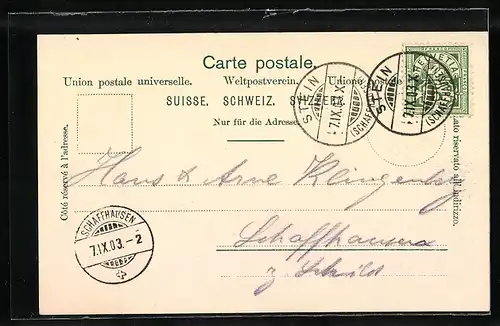 Carte postale.
Union postale universelle. Weltpostverein. Unione postale
SUISSE. SCHWEIZ. SVIZZERA.
Nur für die Adresse.
Côté réservé à l'adresse.
Lato riservato all'indirizzo.
STEIN
7.IX.03.
(SCHAFF
STEIN
7.IX.03.
(SCHAFF
HELVETIA
Hans & Arne Klingenberg
Schaffhausen
z. Schild
SCHAFFHAUSEN
7.IX.03.-2